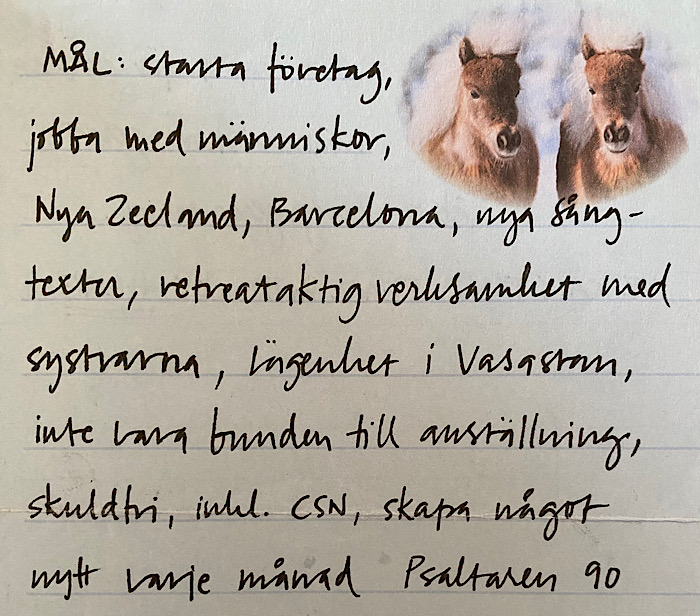 MÅL: starta företag,
jobba med människor,
Nya Zeeland, Barcelona, nya sång-
texter, retreataktig verksamhet med
systrarna, lägenhet i Vasastan,
inte vara bunden till anställning,
skuldfri, inkl. CSN, skapa något
nytt varje månad Psaltaren 90